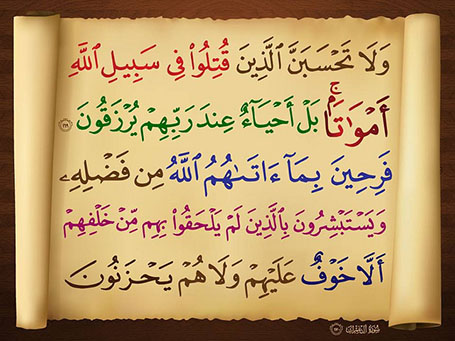 وَلَا تَحْسَبَنَّ ٱلَّذِينَ قُتِلُوا۟ فِى سَبِيلِ ٱللَّهِ
أَمْوَٰتًۢا ۚ بَلْ أَحْيَآءٌ عِندَ رَبِّهِمْ يُرْزَقُونَ ١٦٩
فَرِحِينَ بِمَآ ءَاتَىٰهُمُ ٱللَّهُ مِن فَضْلِهِۦ
وَيَسْتَبْشِرُونَ بِٱلَّذِينَ لَمْ يَلْحَقُوا۟ بِهِم مِّنْ خَلْفِهِمْ
أَلَّا خَوْفٌ عَلَيْهِمْ وَلَا هُمْ يَحْزَنُونَ
سُورَةُ آلِ عِمْرَانَ